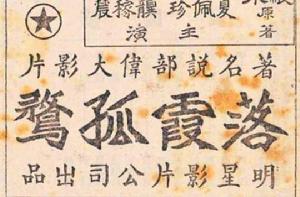 原著
夏佩珍
主演
著名說部偉大影片
落霞孤鶩
明星影片公司出品